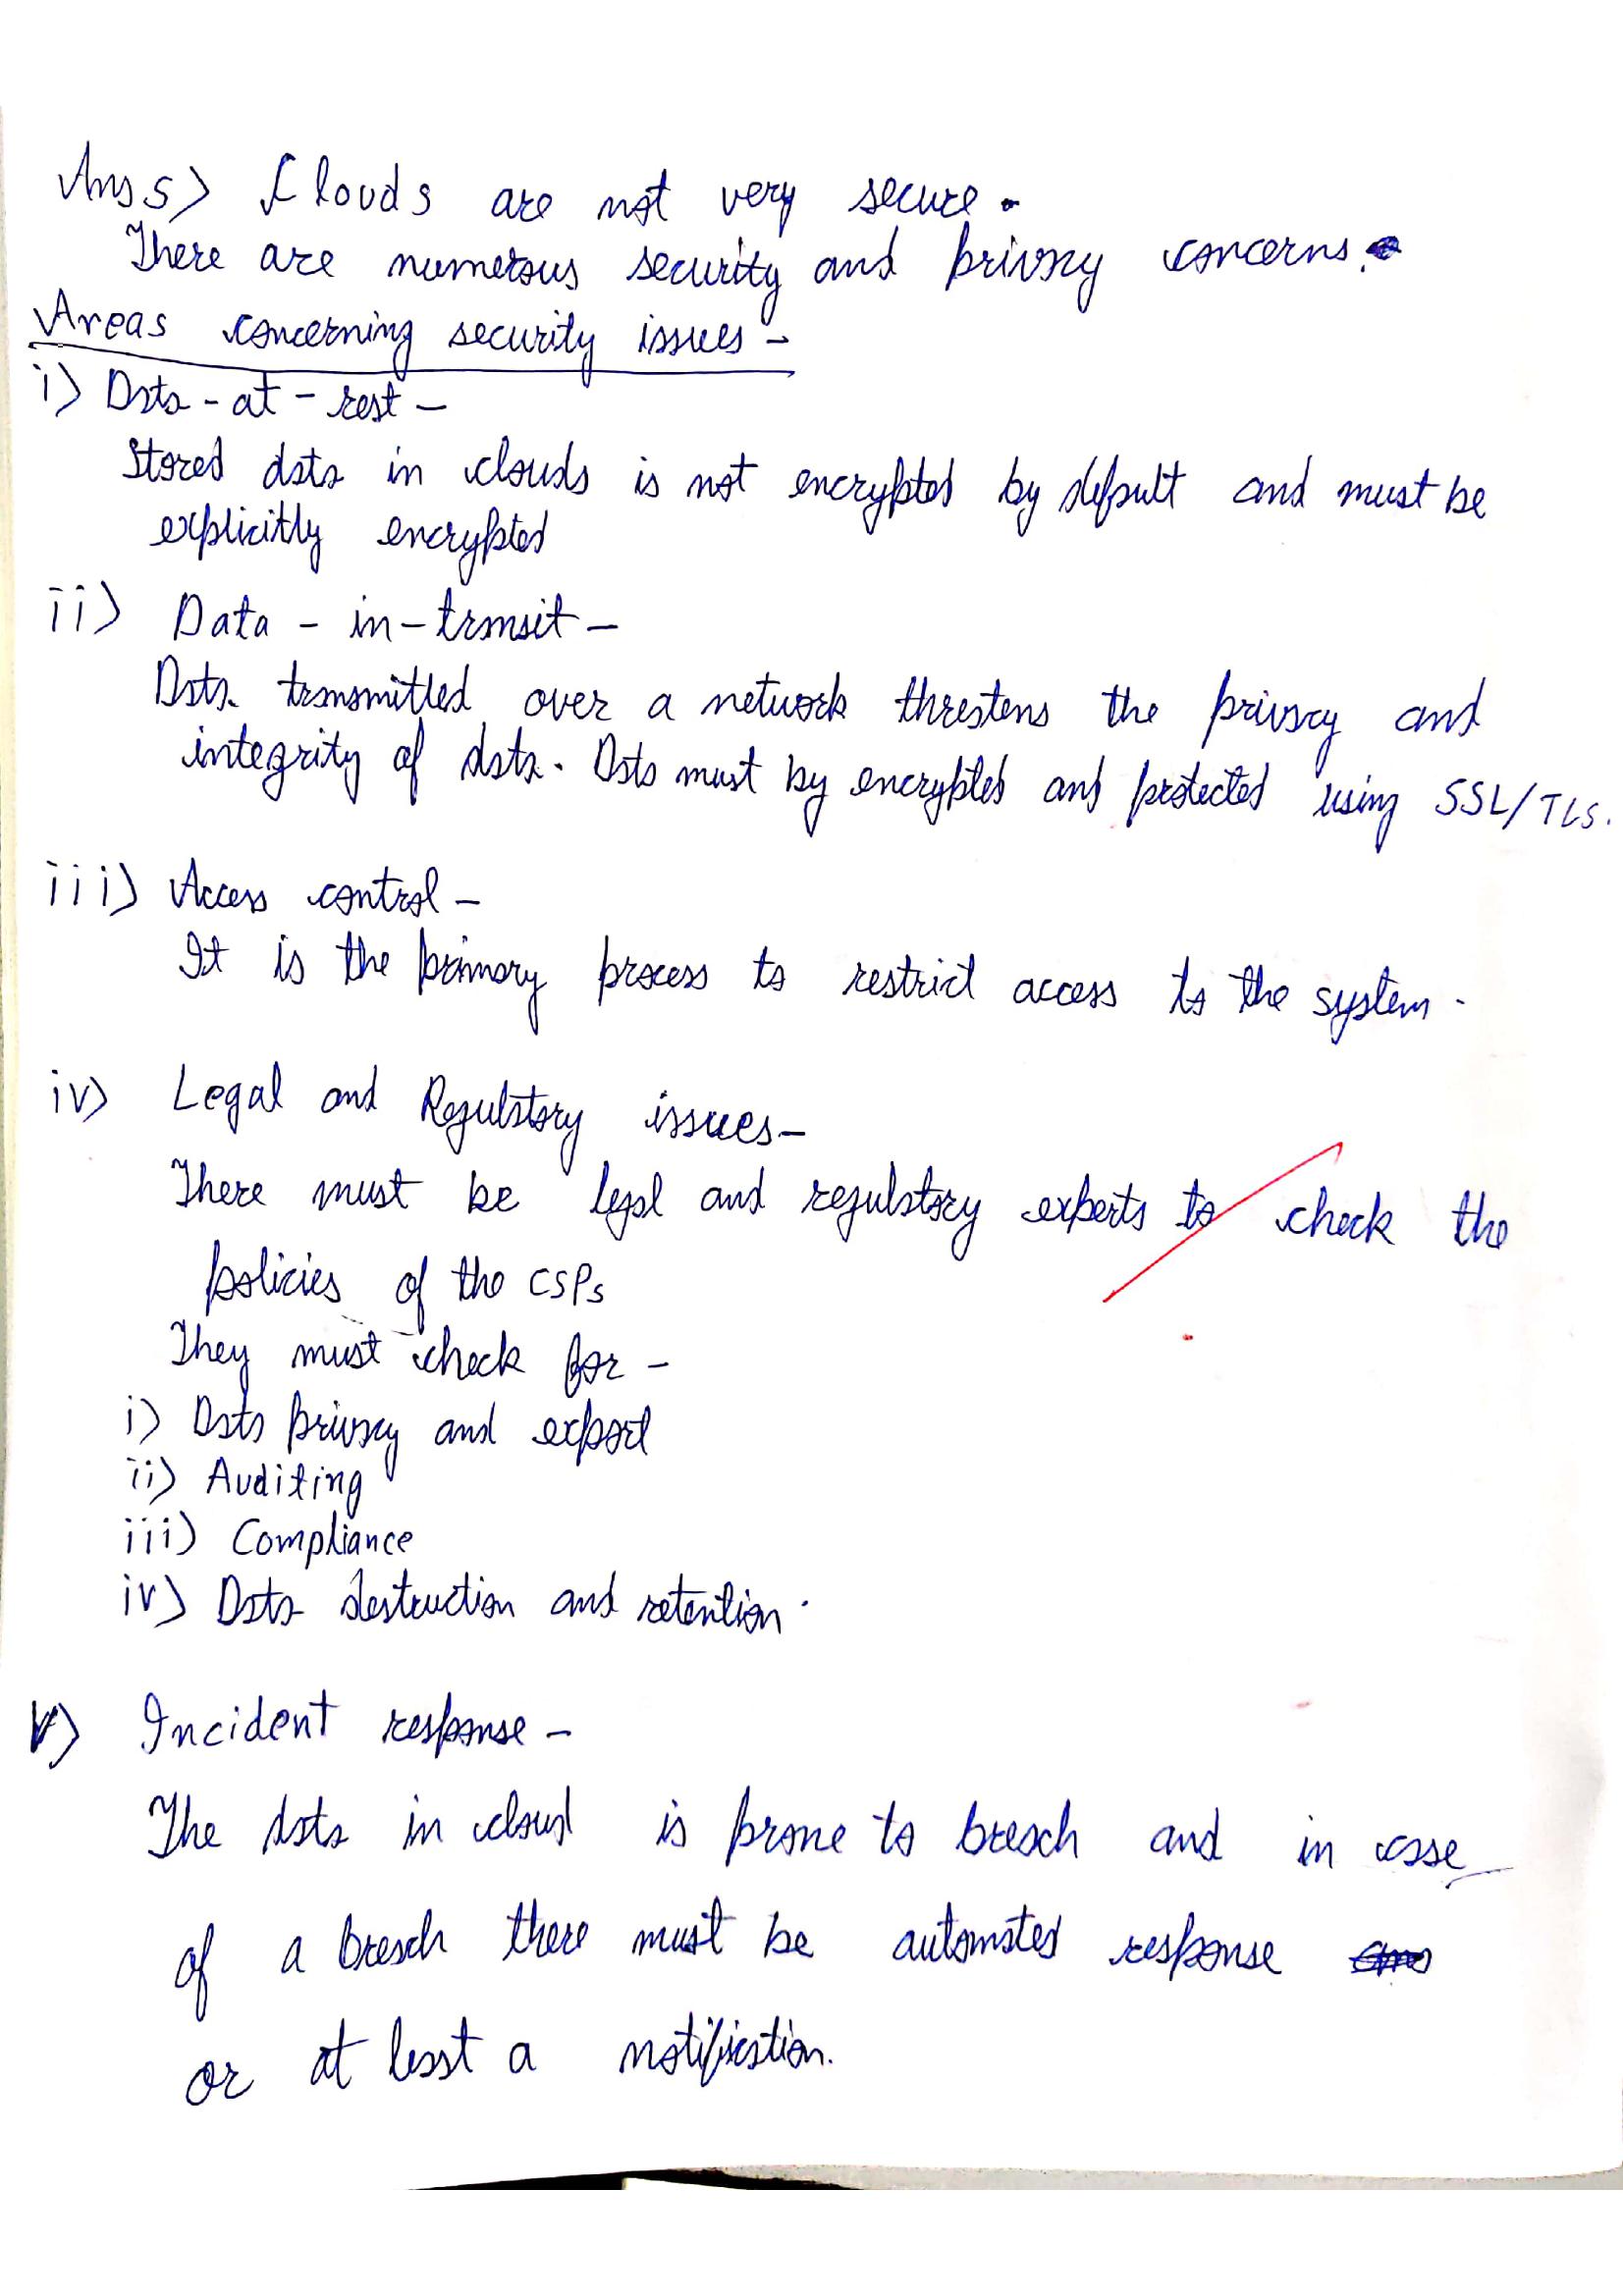 Ans 5> Clouds are not very secure.
There are numerous security and privacy concerns.
Areas concerning security issues -
i) Data - at - rest -
Stored data in clouds is not encrypted by default and must be
explicitly encrypted
ii) Data - in - transit -
Data transmitted over a network threatens the privacy and
integrity of data. Data must by encrypted and protected using SSL/TLS.
iii) Access control -
It is the primary process to restrict access to the system.
iv) Legal and Regulatory issues -
There must be legal and regulatory experts to check the
policies of the CSPs
They must check for -
i) Data privacy and export
ii) Auditing
iii) Compliance
iv) Data destruction and retention.
v) Incident response -
The data in cloud is prone to breach and in case
of a breach there must be automated response
or at least a notification.